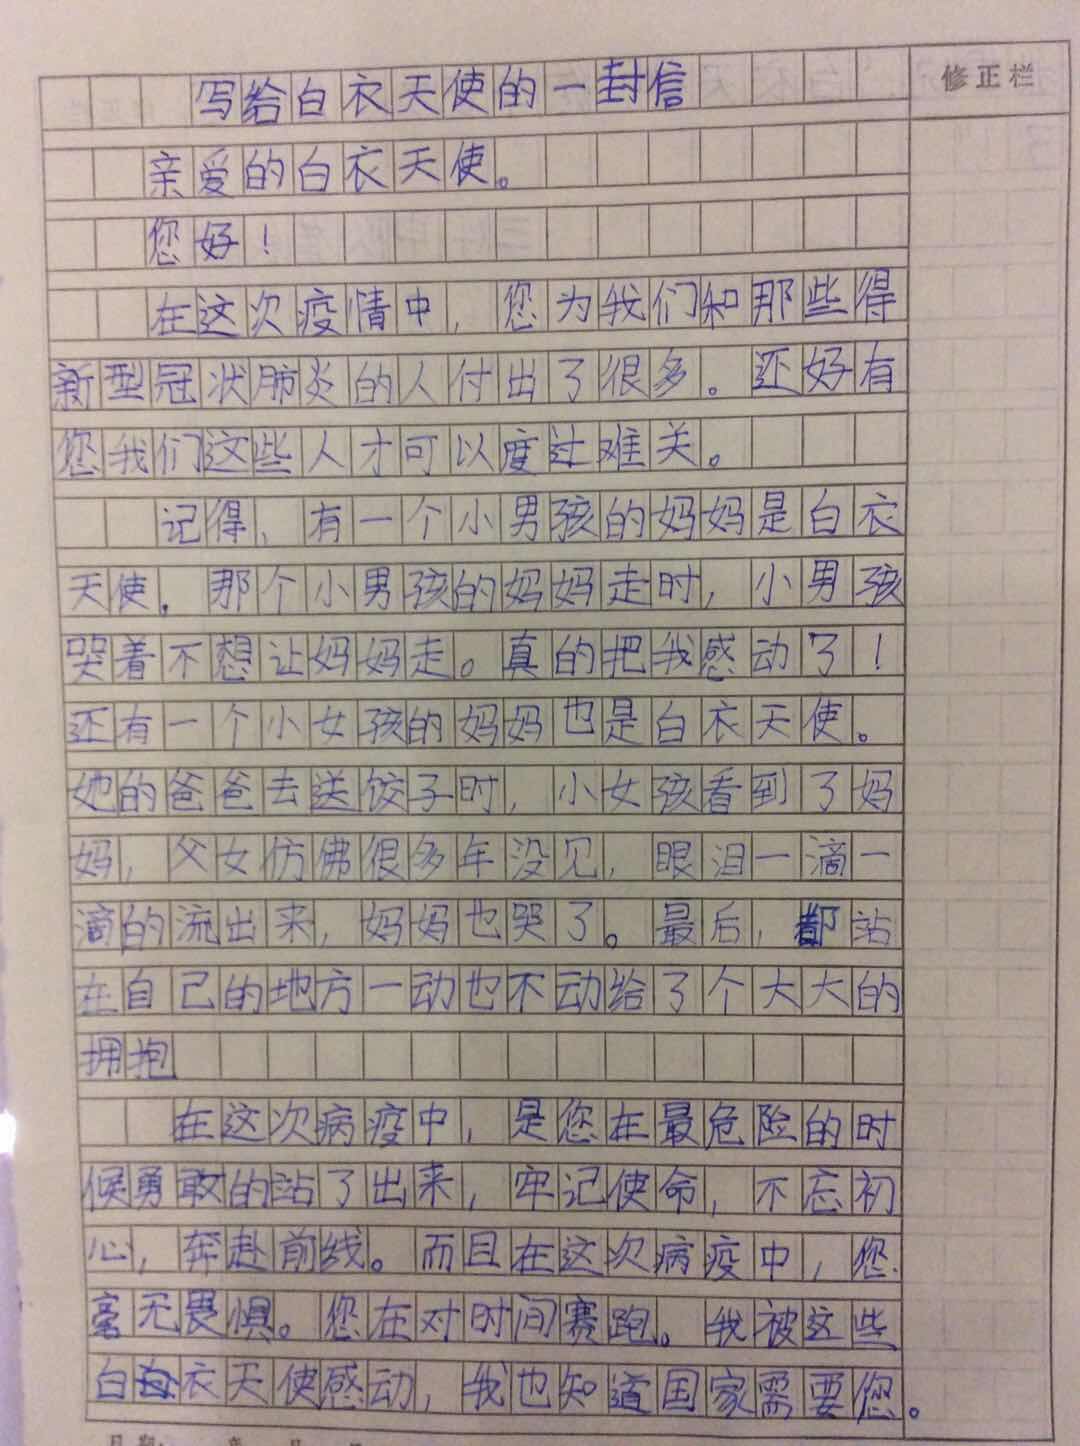 写给白衣天使的一封信
修正栏
亲爱的白衣天使。
您好！
在这次疫情中，您为我们和那些得
新型冠状肺炎的人付出了很多。还好有
您我们这些人才可以度过难关。
记得，有一个小男孩的妈妈是白衣
天使，那个小男孩的妈妈走时，小男孩
哭着不想让妈妈走。真的把我感动了！
还有一个小女孩的妈妈也是白衣天使。
她的爸爸去送饺子时，小女孩看到了妈
妈，父女仿佛很多年没见，眼泪一滴一
滴的流出来，妈妈也哭了。最后，都站
在自己的地方一动也不动给了个大大的
拥抱
在这次病疫中，是您在最危险的时
候勇敢的站了出来，牢记使命，不忘初
心，奔赴前线。而且在这次病疫中，您
毫无畏惧。您在对时间赛跑。我被这些
白衣天使感动，我也知道国家需要您。